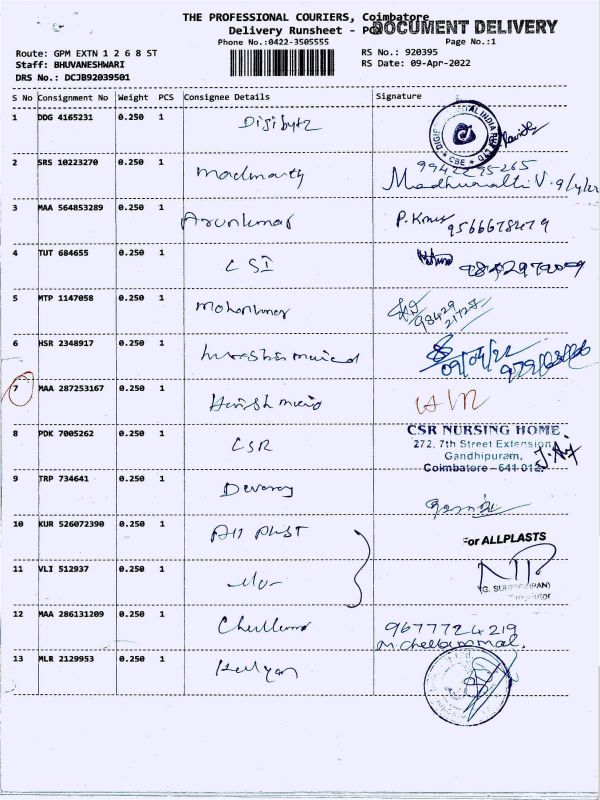 THE PROFESSIONAL COURIERS, Coimbatore
DOCUMENT DELIVERY
Delivery Runsheet - POD
Phone No.:0422-3505555
Page No.:1
Route: GPM EXTN 1 2 6 8 ST
RS No.: 920395
Staff: BHUVANESHWARI
RS Date: 09-Apr-2022
DRS No.: DCJB92039501
S No Consignment No Weight PCS Consignee Details Signature
1 DDG 4165231 0.250 1 Digibytz
2 SRS 10223270 0.250 1
9942295265
Madhumathi V. 9/4/22
3 MAA 564853289 0.250 1 Arunkumar P. Kumar
9566678479
4 TUT 684655 0.250 1 CSI
5 MTP 1147058 0.250 1
98429
21725
6 HSR 2348917 0.250 1
09/04/22
7 MAA 287253167 0.250 1
8 PDK 7005262 0.250 1 CSR
CSR NURSING HOME
272, 7th Street Extension,
Gandhipuram,
Coimbatore - 641 012.
9 TRP 734641 0.250 1 Devaraj
10 KUR 526072390 0.250 1 All Plast
For ALLPLASTS
11 VLI 512937 0.250 1
12 MAA 286131209 0.250 1
9677724219
M. Chellammal.
13 MLR 2129953 0.250 1 Kalyan